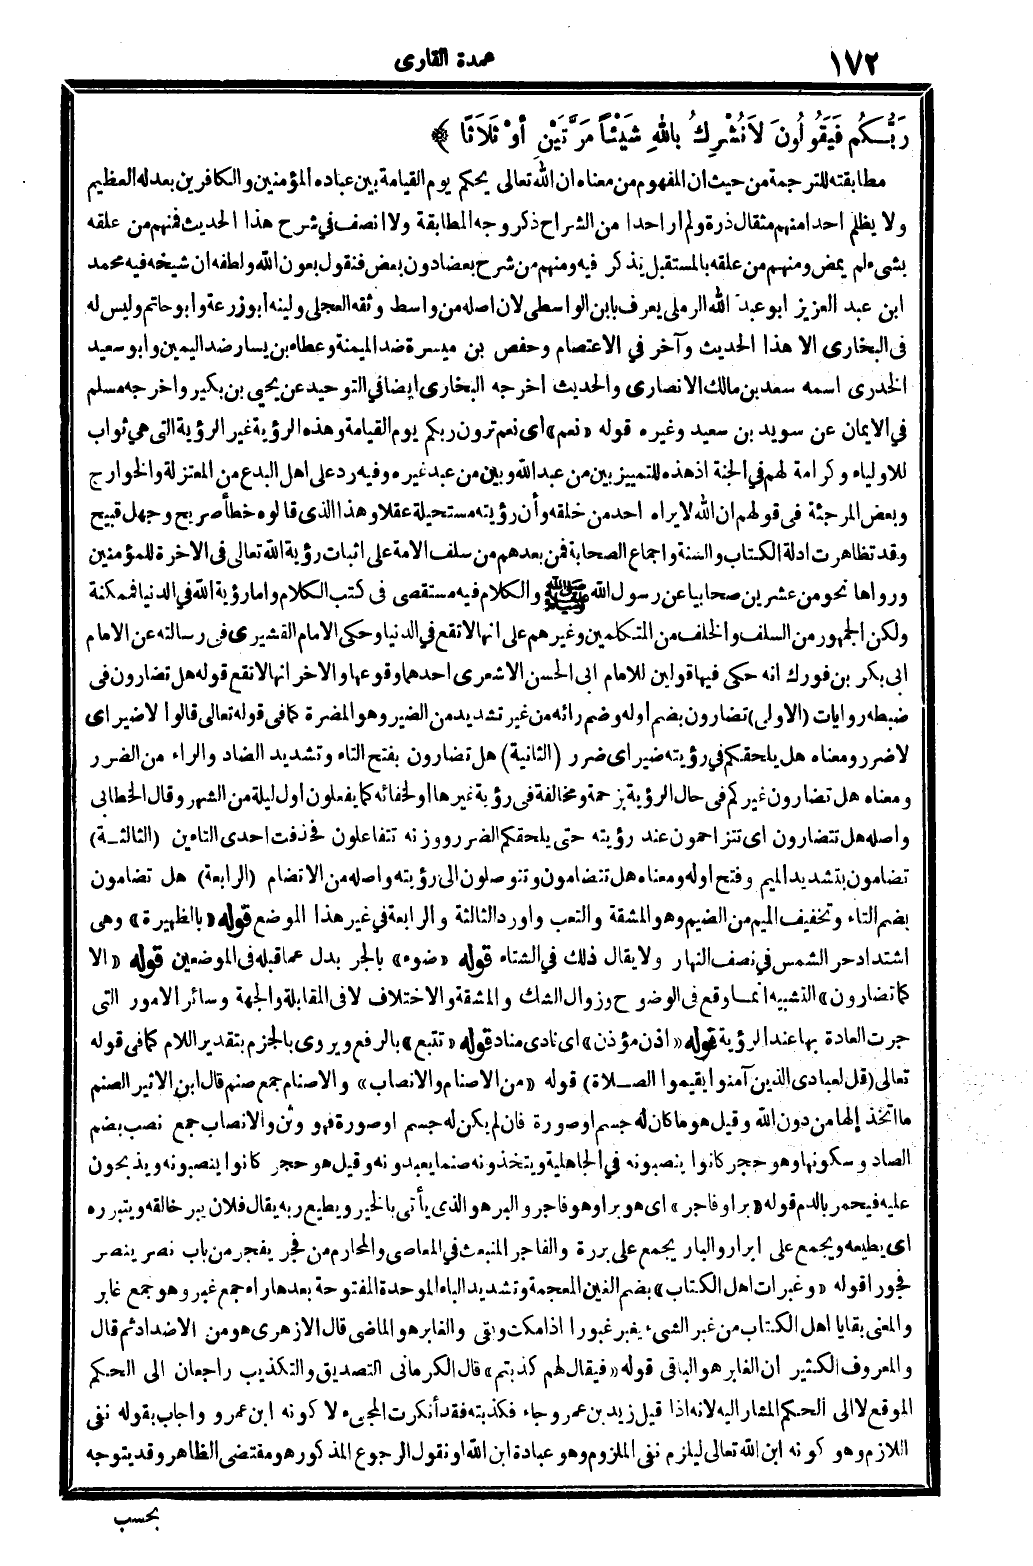 ١٧٢
عمدة القارى
رَبُّكُم فَيَقُولُونَ لاَ نُشْرِكُ بِاللهِ شَيْئاً مَرَّتَيْنِ أوْ ثَلاَثاً ﴾
مطابقته للترجمة من حيث ان المفهوم من معناه ان الله تعالى يحكم يوم القيامة بين عباده المؤمنين والكافرين بعدله العظيم
ولا يظلم احدا منهم مثقال ذرة ولم ار احدا من الشراح ذكر وجه المطابقة ولا انصف في شرح هذا الحديث فمنهم من علقه
بشىء لم يمض ومنهم من علقه بالمستقبل يذكر فيه ومنهم من شرح بعضا دون بعض فنقول بعون الله ولطفه ان شيخه فيه محمد
ابن عبد العزيز ابو عبد الله الرملى يعرف بابن الواسطى لان اصله من واسط وثقه العجلى ولينه أبو زرعة وأبو حاتم وليس له
فى البخارى الا هذا الحديث وآخر في الاعتصام وحفص بن ميسرة ضد الميمنة وعطاء بن يسار ضد اليمين وابو سعيد
الخدرى اسمه سعد بن مالك الانصارى والحديث اخرجه البخارى ايضا في التوحيد عن يحيى بن بكير واخرجه مسلم
في الايمان عن سويد بن سعيد وغيره قوله «نعم» أى نعم ترون ربكم يوم القيامة وهذه الرؤية غير الرؤية التى هي ثواب
للاولياء وكرامة لهم في الجنة اذ هذه للتمييز بين من عبد الله وبين من عبد غيره وفيه رد على اهل البدع من المعتزلة والخوارج
وبعض المرجئة فى قولهم ان الله لا يراه احد من خلقه وأن رؤيته مستحيلة عقلا وهذا الذى قالوه خطأ صريح وجهل قبيح
وقد تظاهرت ادلة الكتاب والسنة واجماع الصحابة فمن بعدهم من سلف الامة على اثبات رؤية الله تعالى فى الاخرة للمؤمنين
ورواها نحو من عشرين صحابيا عن رسول الله ﷺ والكلام فيه مستقصى فى كتب الكلام واما رؤية الله في الدنيا فممكنة
ولكن الجمهور من السلف والخلف من المتكلمين وغيرهم على انها لا تقع في الدنيا وحكى الامام القشيرى فى رسالته عن الامام
ابى بكر بن فورك انه حكى فيها قولين للامام ابى الحسن الاشعرى احدهما وقوعها والاخر انها لا تقع قوله هل تضارون فى
ضبطه روايات (الاولى) تضارون بضم أوله وضم رائه من غير تشديد من الضير وهو المضرة كما فى قوله تعالى قالوا لا ضير اى
لا ضرر ومعناه هل يلحقكم في رؤيته ضير اى ضرر (الثانية) هل تضارون بفتح التاء وتشديد الضاد والراء من الضرر
ومعناه هل تضارون غيركم فى حال الرؤية بزحمة ومخالفة فى رؤية غيرها او لخفائه كما يفعلون اول ليلة من الشهر وقال الخطابى
واصله هل تتضارون اى تتزاحمون عند رؤيته حتى يلحقكم الضرر ووزنه تتفاعلون فحذفت احدى التاءين (الثالثـة)
تضامون بتشديد الميم وفتح اوله ومعناه هل تتضامون وتتوصلون الى رؤيته واصله من الانضام (الرابعة) هل تضامون
بضم التاء وتخفيف الميم من الضيم وهو المشقة والتعب واورد الثالثة والرابعة في غير هذا الموضع قوله «بالظهيرة» وهى
اشتداد حر الشمس في نصف النهار ولا يقال ذلك في الشتاء قوله «ضوء» بالجر بدل عما قبله فى الموضعين قوله «الا
كما تضارون» التشبيه انمـا وقع فى الوضوح وزوال الشك والمشقة والاختلاف لا فى المقابلة والجهة وسائر الامور التى
جرت العادة بها عند الرؤية قوله «اذن مؤذن» اى نادى مناد قوله «تتبع» بالرفع ويروى بالجزم بتقدير اللام كما فى قوله
تعالى (قل لعبادى الذين آمنوا يقيموا الصـلاة) قوله «من الاصنام والانصاب» والاصنام جمع صنم قال ابن الاثير الصنم
ما اتخذ إلها من دون الله وقيل هو ما كان له جسم او صورة فان لم يكن له جسم او صورة فهو وثن والانصاب جمع نصب بضم
الصاد وسكونها وهو حجر كانوا ينصبونه في الجاهلية ويتخذونه صنما يعبدونه وقيل هو حجر كانوا ينصبونه ويذبحون
عليه فيحمر بالدم قوله «بر او فاجر» اى هو بر او هو فاجر والبر هو الذى يأتى بالخير ويطيع ربه يقال فلان يبر خالقه ويتبرره
اى يطيعه ويجمع على ابرار والبار يجمع على بررة والفاجر المنبعث في المعاصى والمحارم من فجر يفجر من باب نصر ينصر
فجورا قوله «وغبرات اهل الكتاب» بضم الغين المعجمة وتشديد الباء الموحدة المفتوحة بعدها راء جمع غبر وهو جمع غابر
والمعنى بقايا اهل الكتاب من غبر الشىء يغبر غبورا اذا مكث وبقى والغابر هو الماضى قال الازهرى هو من الاضداد ثم قال
والمعروف الكثير ان الغابر هو الباقى قوله «فيقال لهم كذبتم» قال الكرمانى التصديق والتكذيب راجعان الى الحكم
الموقع لا الى الحكم المشار اليه لانه اذا قيل زيد بن عمرو جاء فكذبته فقد أنكرت المجىء لا كونه ابن عمرو واجاب بقوله نفى
اللازم وهو كونه ابن الله تعالى ليلزم نفى الملزوم وهو عبادة ابن الله او نقول الرجوع المذكور هو مقتضى الظاهر وقد يتوجه
بحسب